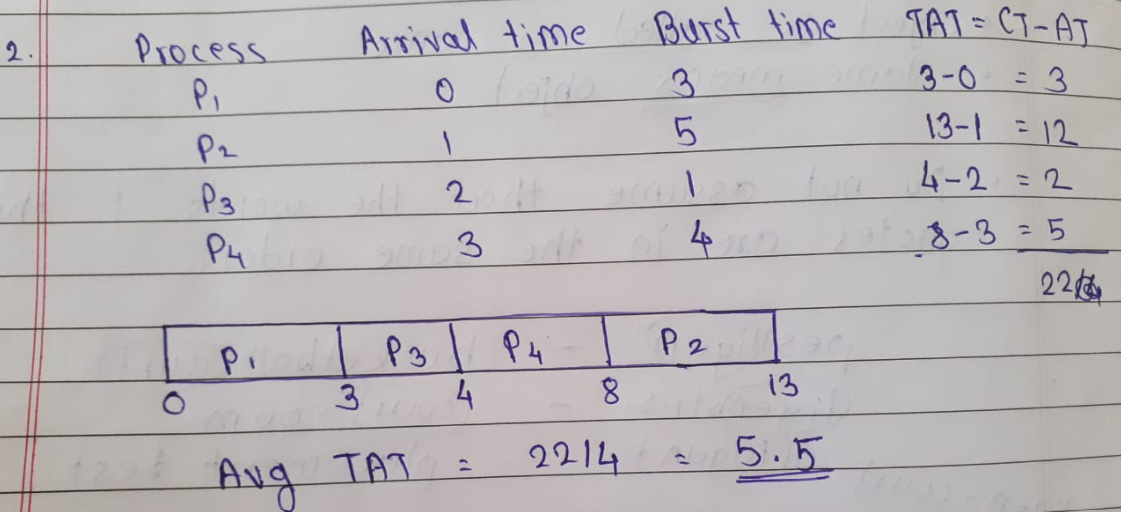 2. Process Arrival time Burst time TAT = CT-AT
P1 0 3 3-0 = 3
P2 1 5 13-1 = 12
P3 2 1 4-2 = 2
P4 3 4 8-3 = 5
22
P1 P3 P4 P2
0 3 4 8 13
Avg TAT = 22/4 = 5.5